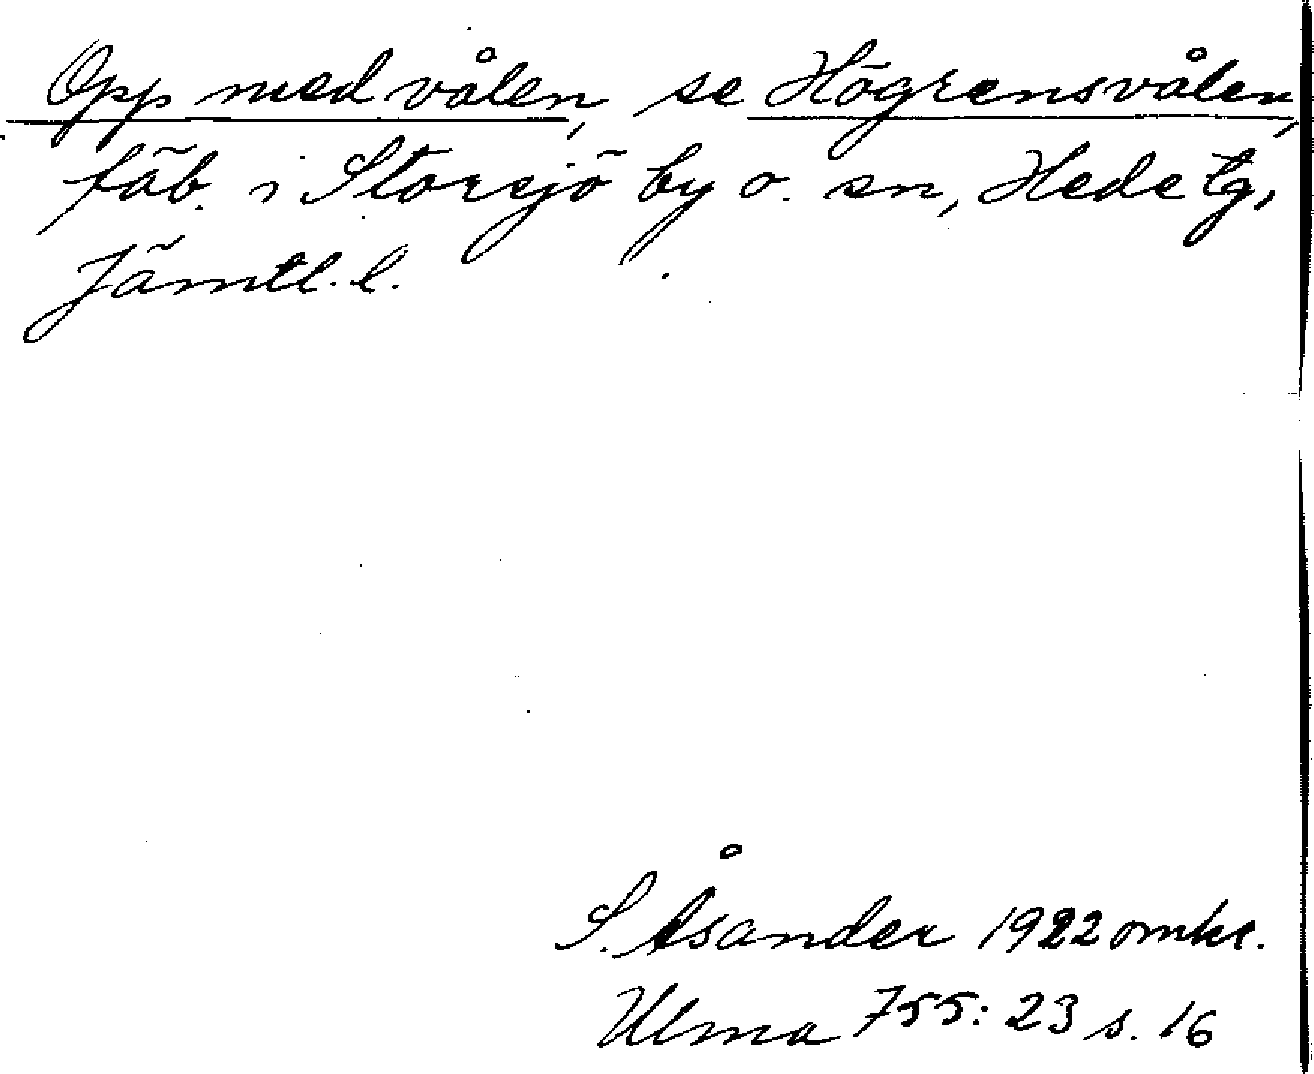 Opp med vålen, se Högrensvålen,
fäb. i Storsjö by o. sn, Hede tg,
Jämtl. l.
S. Åsander 1922 omkr.
Ulma 755: 23 s. 16